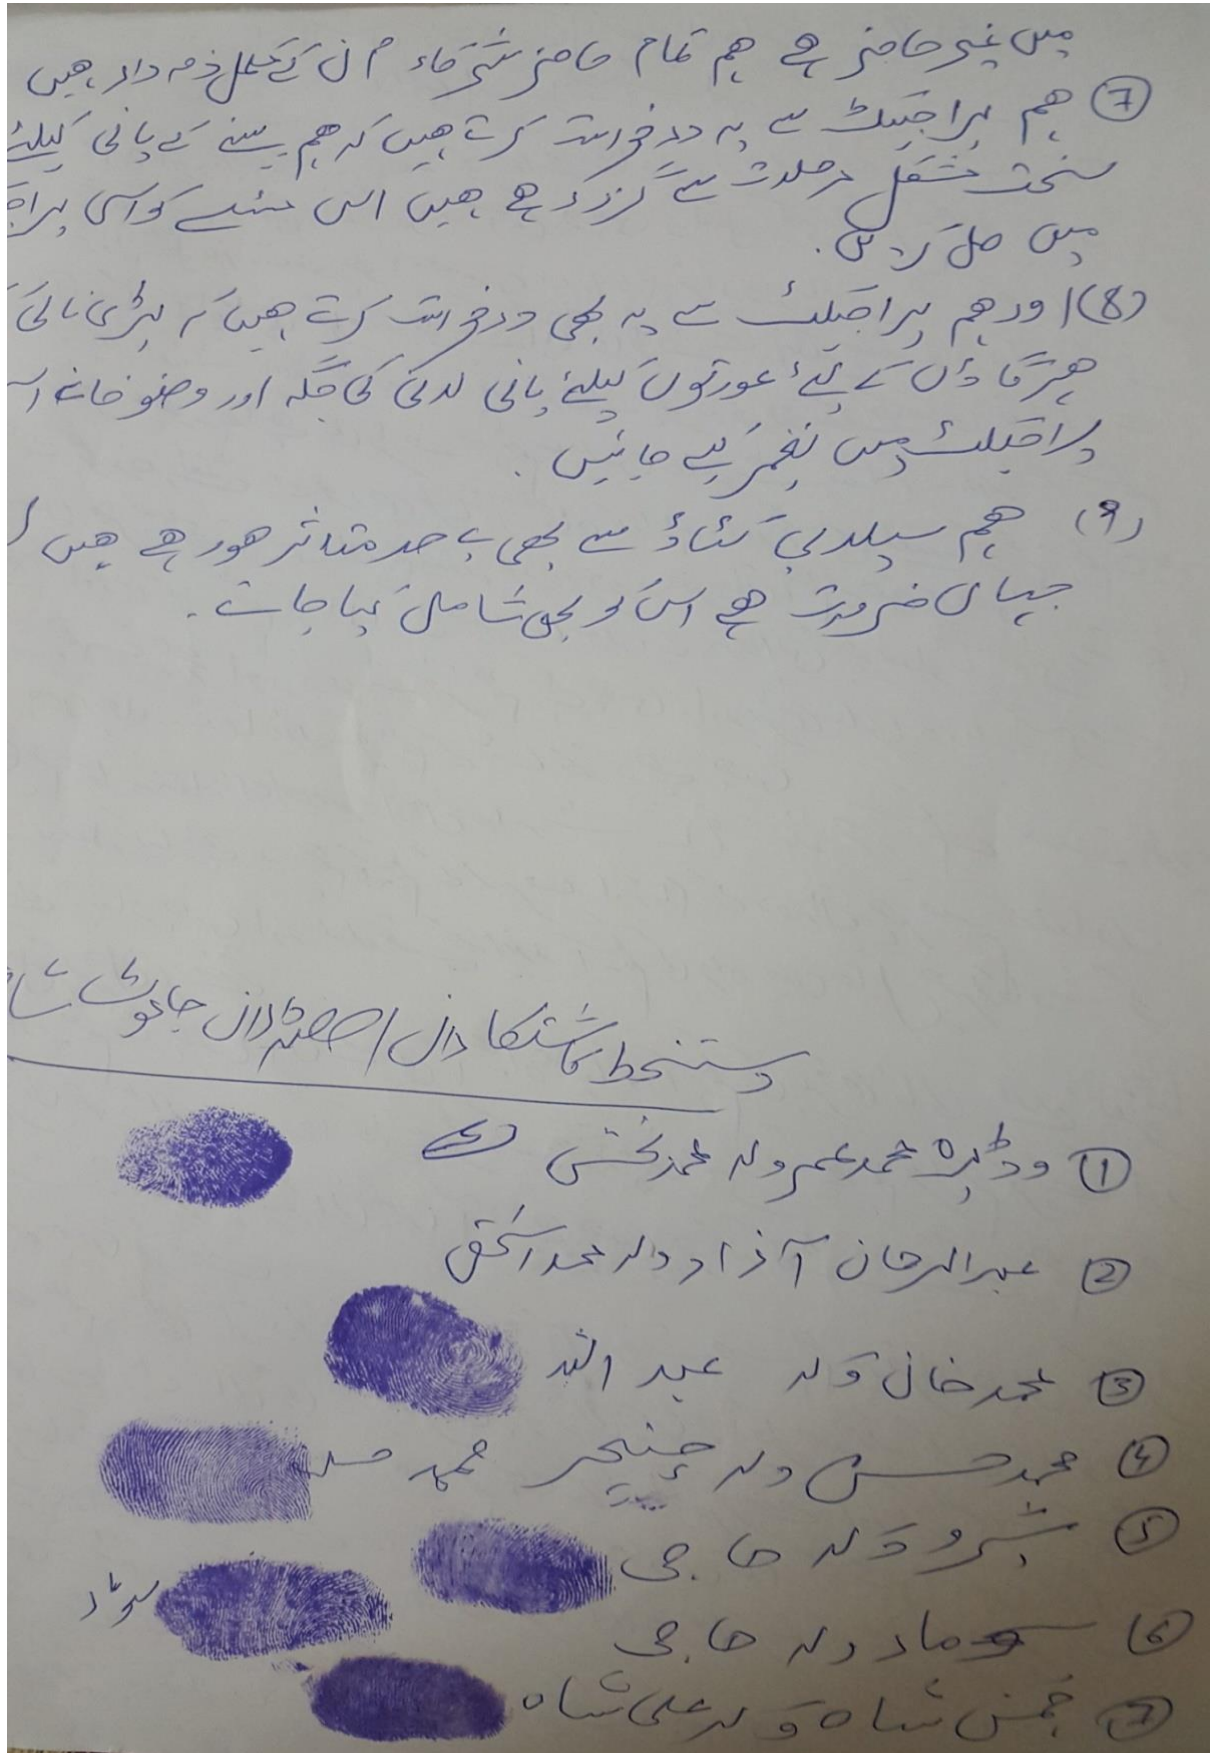 میں غیر حاضر ہے ہم تمام حاضر شرکاء ان کے مکمل ذمہ دار ہیں
(7) ہم پراجیکٹ سے یہ درخواست کرتے ہیں کہ ہم پینے کے پانی کیلئے
سخت مشکل مرحلات سے گزر رہے ہیں اس مسئلے کو اسی
میں حل کریں.
(8) اور ہم پراجیکٹ سے یہ بھی درخواست کرتے ہیں کہ بڑی نالی
ہر گاؤں کے لئے عورتوں کیلئے پانی لانے کی جگہ اور وضو خانہ
پراجیکٹ میں تعمیر کیے جائیں.
(9) ہم سیلابی کٹاؤ سے بھی بے حد متاثر ہو رہے ہیں
جہاں ضرورت ہے اس کو بھی شامل کیا جائے.
دستخط کاشتکاران / حصہ داران
(1) وڈیرہ محمد عمر ولد محمد بخش
(2) عبدالرحمان آزاد ولد محمد اسحق
(3) محمد خان ولد عبد اللہ
(4) محمد حسن ولد محمد حسن
(5) شیرو ولد حاجی
(6) سومار ولد حاجی سومار
(7) شاہ ولد علی شاہ